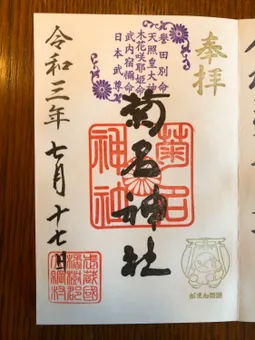 奉拝
誉田別命
天照皇大神
木花咲耶姫命
武内宿禰命
日本武尊
菊名神社
菊名
神社
令和三年 七月 十七日
武蔵國
橘樹郡
大綱村
がまんさま